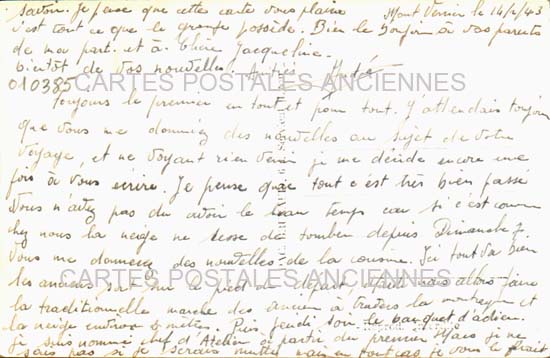 savoir. Je pense que cette carte vous plaira
Mont Vernier le 14/2/43
c'est tout ce que le grange possède. Bien le bonjour à vos parents
de ma part et à Chère Jacqueline.
bientôt de vos nouvelles. Amitiés André
010385
CARTES POSTALES ANCIENNES
Toujours le premier en tout et pour tout. J'attendais toujours
que vous me donniez des nouvelles au sujet de votre
voyage, et ne voyant rien venir je me décide encore une
fois à vous écrire. Je pense que tout c'est très bien passé
Vous n'avez pas du avoir le beau temps car si c'est comme
chez nous la neige ne cesse de tomber depuis Dimanche 7.
Vous me donnerez des nouvelles de la cousine. Ici tout va bien
CARTES POSTALES ANCIENNES
les anciens sont sur le pied du départ, après nous allons faire
la traditionnelle marche des anciens à travers la montagne et
la neige environ 2 mètres. Puis jeudi soir le banquet d'adieu.
je suis nommé chef d'Atelier à partir du premier Mars je ne
sais pas si je serais muté mais en tout cas je vous le ferait